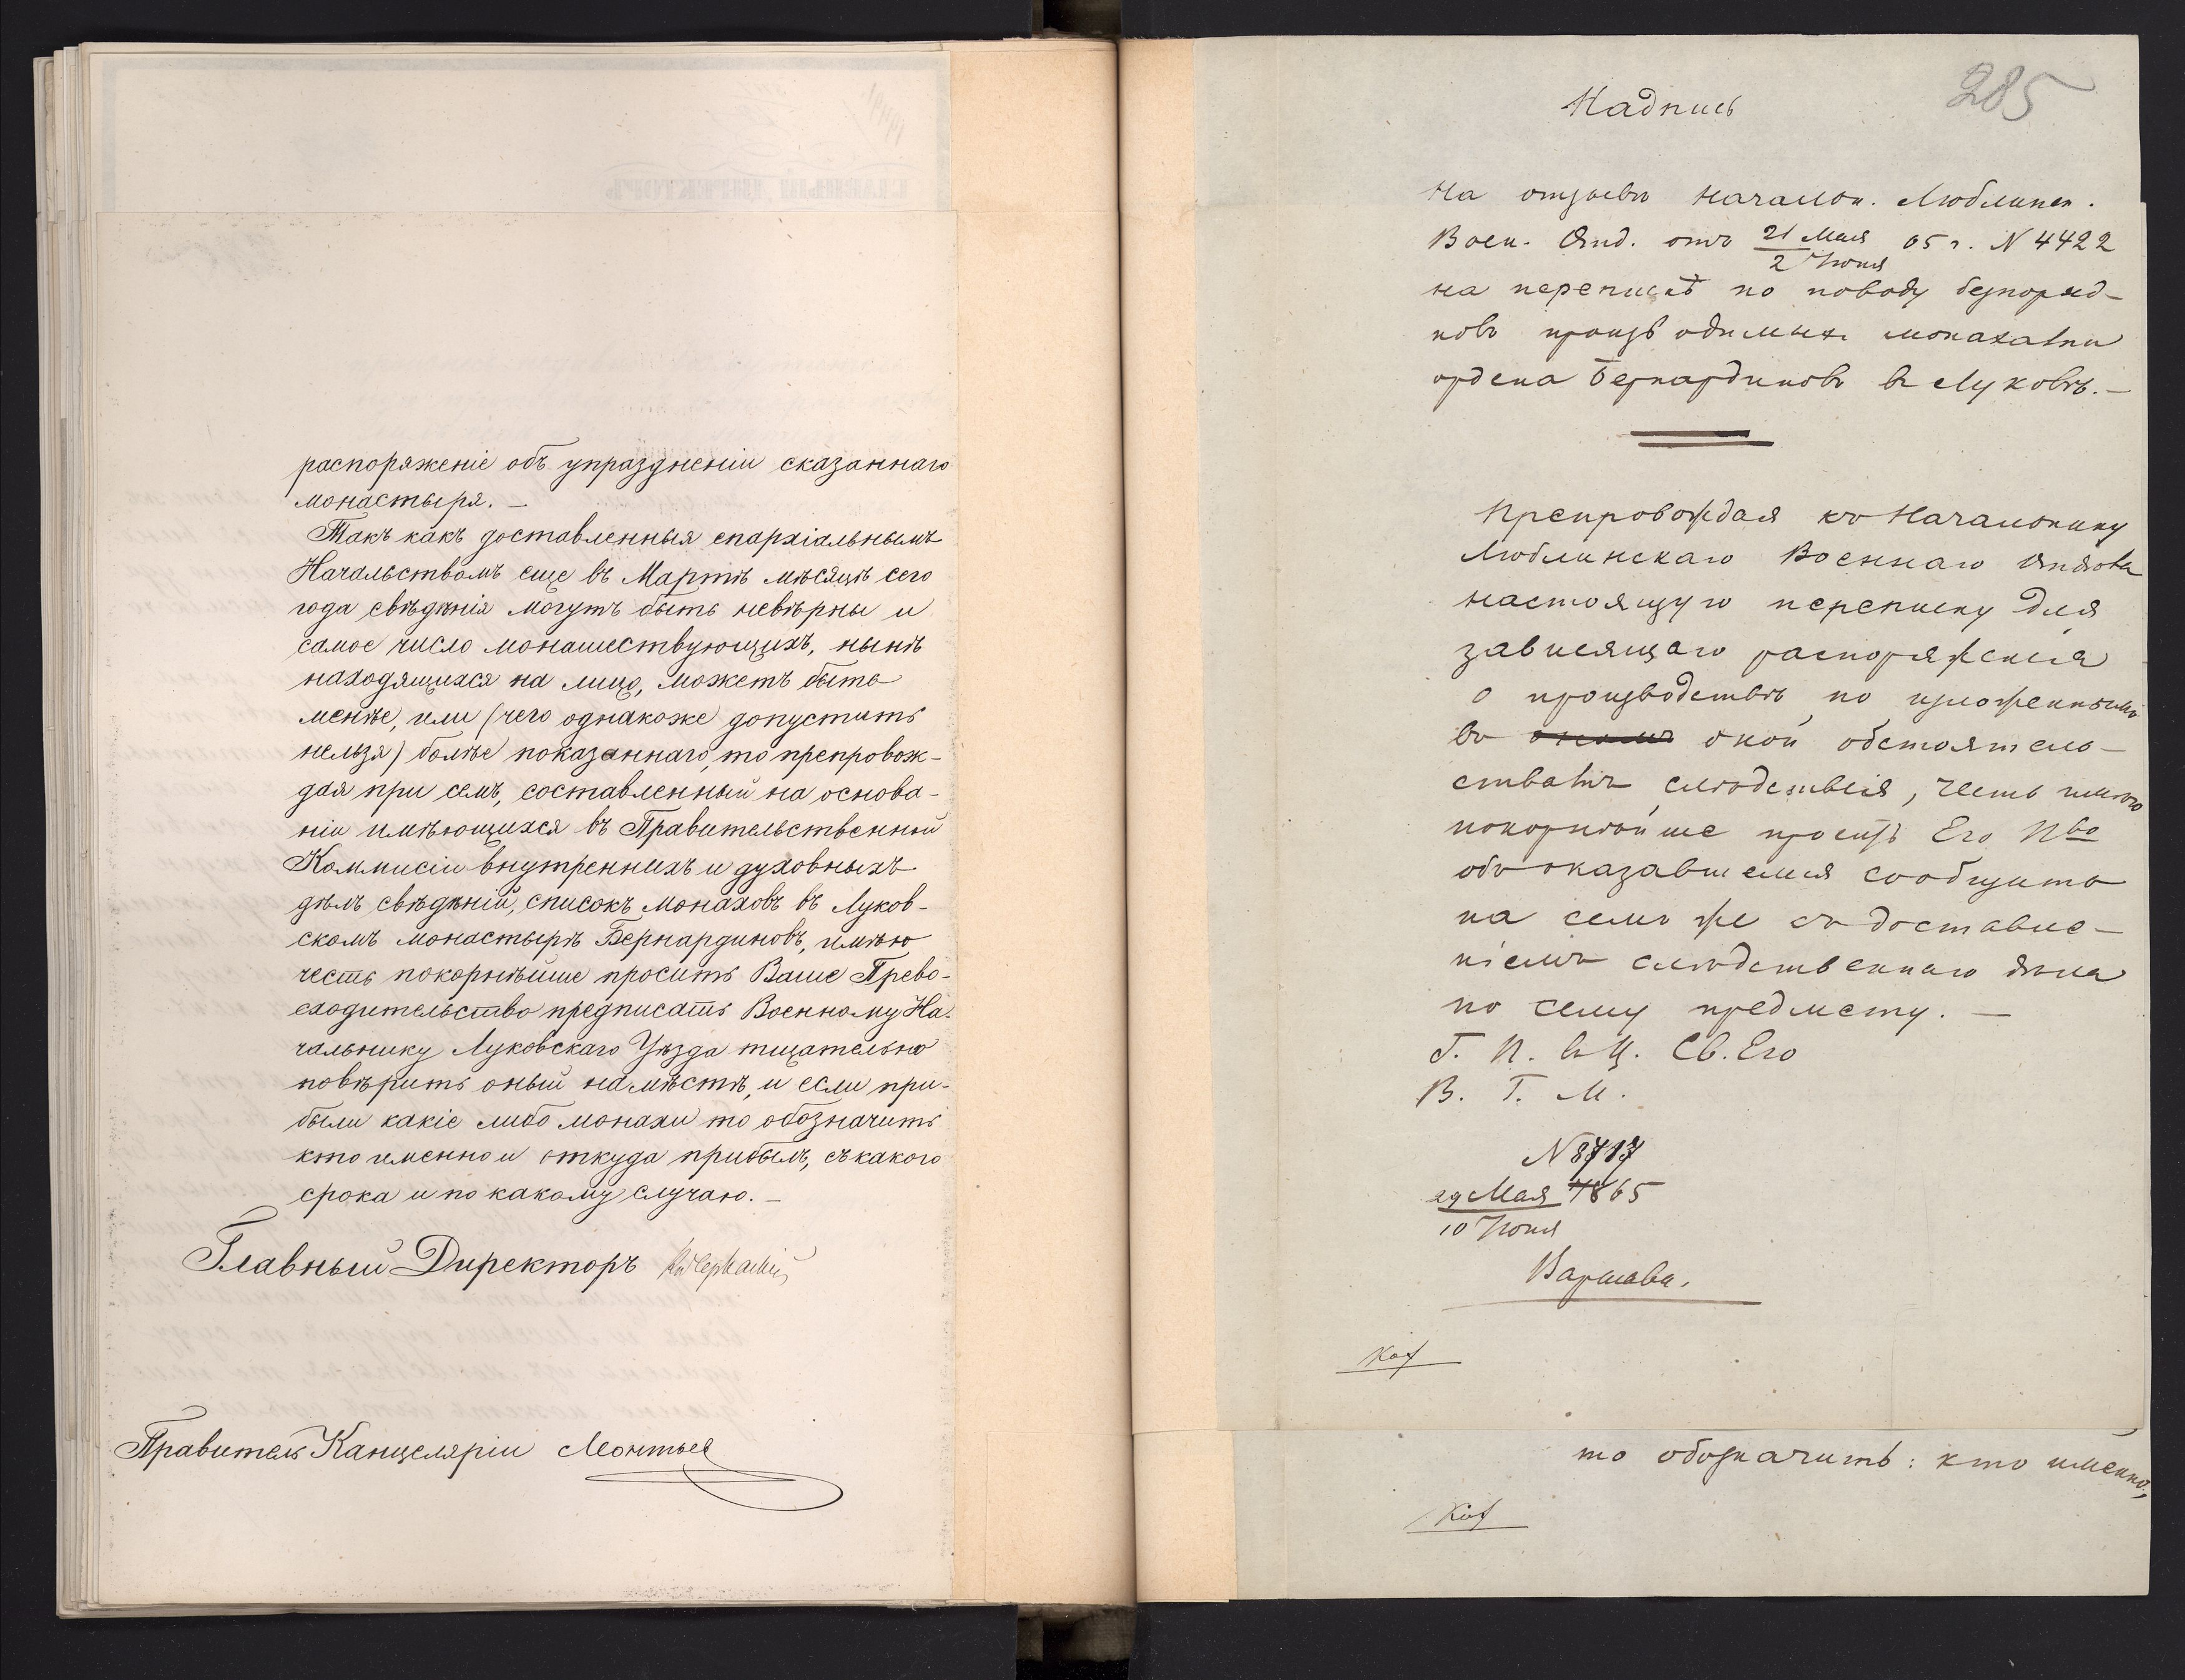 распоряженіе объ упраздненіи сказаннаго
монастыря. —
Такъ какъ доставленныя епархіальнымъ
Начальствомъ еще въ Мартѣ мѣсяцѣ сего
года свѣдѣнія могутъ быть невѣрны и
самое число монашествующихъ, нынѣ
находящихся на лицо, можетъ быть
менѣе, или (чего однакоже допустить
нельзя) болѣе показаннаго, то препровож-
дая при семъ, составленный на основа-
ніи имѣющихся въ Правительственной
Коммисіи внутреннихъ и духовныхъ
дѣлъ свѣдѣній, списокъ монаховъ въ Луков-
скомъ монастырѣ Бернардиновъ, имѣю
честь покорнѣйше просить Ваше Прево-
сходительство предписать Военному На-
чальнику Луковскаго Уѣзда тщательно
повѣрить оный на мѣстѣ, и если при-
были какіе либо монахи то обозначить
кто именно и откуда прибылъ, съ какого
срока и по какому случаю. —
Главный Директоръ
Правитель Канцеляріи
285
Надпись
На отзывъ Началън. Люблинск.
Воен. Отд. отъ 21 Мая / 2 Іюня 65 г. N 4422
на перепискѣ по поводу безпоряд-
ковъ производимыхъ монахами
ордена Бернардиновъ въ Луковѣ. —
Препровождая къ Начальнику
Люблинскаго Военнаго Отдѣла
настоящую переписку для
зависящаго распоряженія
о производствѣ по изложеннымъ
въ оной обстоятель-
ствамъ слѣдствія, честь имѣю
покорнѣйше просить Его Пво
объ оказавшемся сообщить
на семъ же съ доставле-
ніемъ слѣдственнаго дѣла
по сему предмету. —
Г. П. въ Ц. Св. Его
В. Г. М.
N 8717
29 Мая 1865
10 Іюня
Варшава.
то обозначить: кто именно,